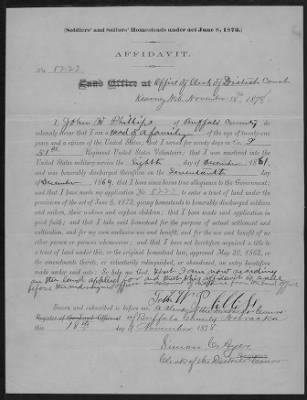 (Soldiers' and Sailors' Homesteads under act June 8, 1872.)
AFFIDAVIT.
No. 5223
Land Office at Office of Clerk of District Court
Kearney Neb. November 18th, 1878
I, John W Phillips, of Buffalo County do
solemnly swear that I am a head of a family of the age of twenty-one
years and a citizen of the United States; that I served for ninety days in Co. F
51st Regiment United States Volunteers; that I was mustered into the
United States military service the Eighth day of December 1861,
and was honorably discharged therefrom on the Seventeenth day of
December 1864; that I have since borne true allegiance to the Government;
and that I have made my application No. 5223, to enter a tract of land under the provisions
of the act of June 8, 1872, giving homesteads to honorably discharged soldiers
and sailors, their widows and orphan children; that I have made said application in
good faith; and that I take said homestead for the purpose of actual settlement and
cultivation, and for my own exclusive use and benefit, and for the use and benefit of no
other person or persons whomsoever; and that I have not heretofore acquired a title to
a tract of land under this, or the original homestead law, approved May 20, 1862, or
the amendments thereto, or voluntarily relinquished, or abandoned, an entry heretofore
made under said acts: So help me God. that I am now residing
on the land applied for and that this affidavit is made
before the Clerk
John W Phillips
Sworn and subscribed to before me, a Clerk of the District Court
Register of
of Buffalo County Nebraska
this 18th day of November 1878
Simon C Ayer
Clerk of the District Court